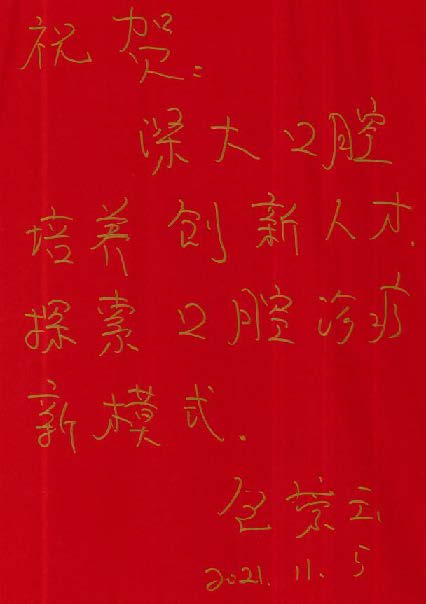 祝贺:
深大口腔
培养创新人才,
探索口腔诊疗
新模式.
2021.11.5